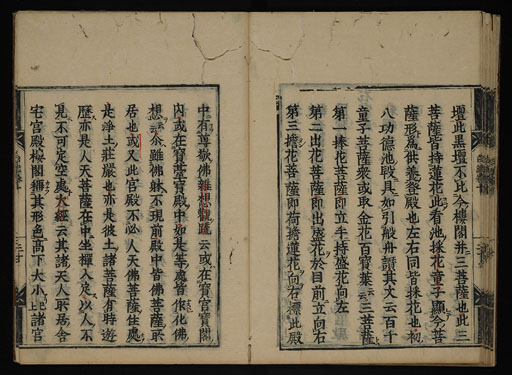 壇此黒壇不比今樓閣并三菩薩也此三
菩薩皆持蓮花此看池採花童子顯今菩
薩形爲供養整殿也左右同皆採花也初
八功德池殿具如引聢舟讃其文云百千
童子菩薩衆或取金花百寶葉云三菩薩
第一捧花菩薩即立手持盛花向左
第二出花菩薩即出盛花於目前立向右
第三擔花菩薩即荷擔蓮花向右標此殿
中有尊敬佛雜想觀疏云或在寶宮寶閣
內或在寶菩寶殿中如是等處皆作化佛
想云今雖佛躰不現前殿中皆佛菩薩所
居也或又此宮殿不必人天佛菩薩住處
是淨土莊嚴也亦是彼土諸菩薩有時遊
歴亦是人天菩薩在中坐禪入定以人不
見不可定空處大經云其諸天人所居舍
宅宮殿樓閣稱其形色高下大小上諸宮